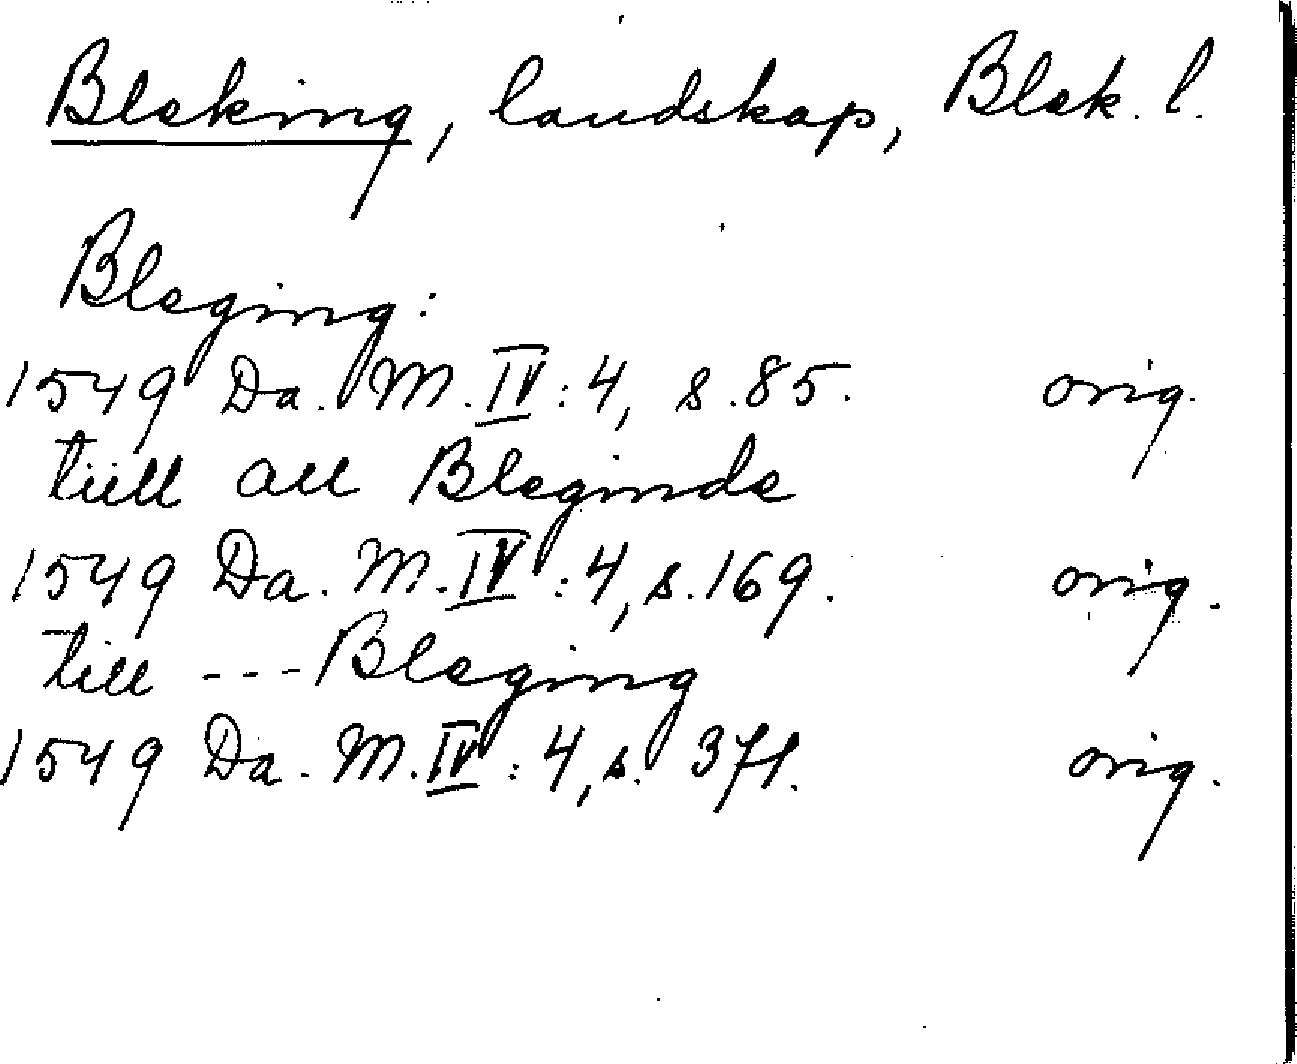 Bleking, landskap, Blek. l.
Bleging:
1549 Da. M. IV : 4, s. 85. orig.
tiill all Bleginde
1549 Da. M. IV : 4, s. 169. orig.
till --- Bleging
1549 Da. M. IV : 4, s. 371. orig.